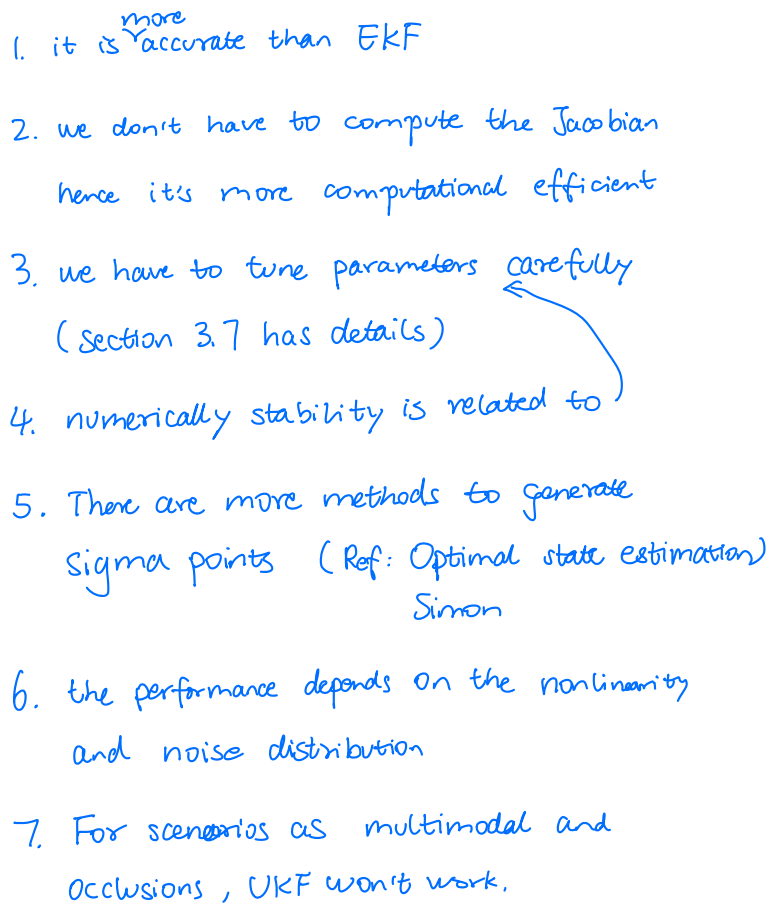 1. it is more accurate than EKF
2. we don't have to compute the Jacobian
hence it's more computational efficient
3. we have to tune parameters carefully
(section 3.7 has details)
4. numerically stability is related to
5. There are more methods to generate
sigma points (Ref: Optimal state estimation)
Simon
6. the performance depends on the nonlinearity
and noise distribution
7. For scenarios as multimodal and
occlusions, UKF won't work.